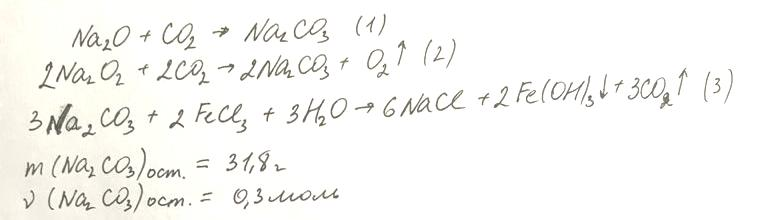 Na₂O + CO₂ → Na₂CO₃ (1)
2Na₂O₂ + 2CO₂ → 2Na₂CO₃ + O₂↑ (2)
3Na₂CO₃ + 2FeCl₃ + 3H₂O → 6NaCl + 2Fe(OH)₃↓ + 3CO₂↑ (3)
m(Na₂CO₃)ост. = 31,8г
ν(Na₂CO₃)ост. = 0,3моль